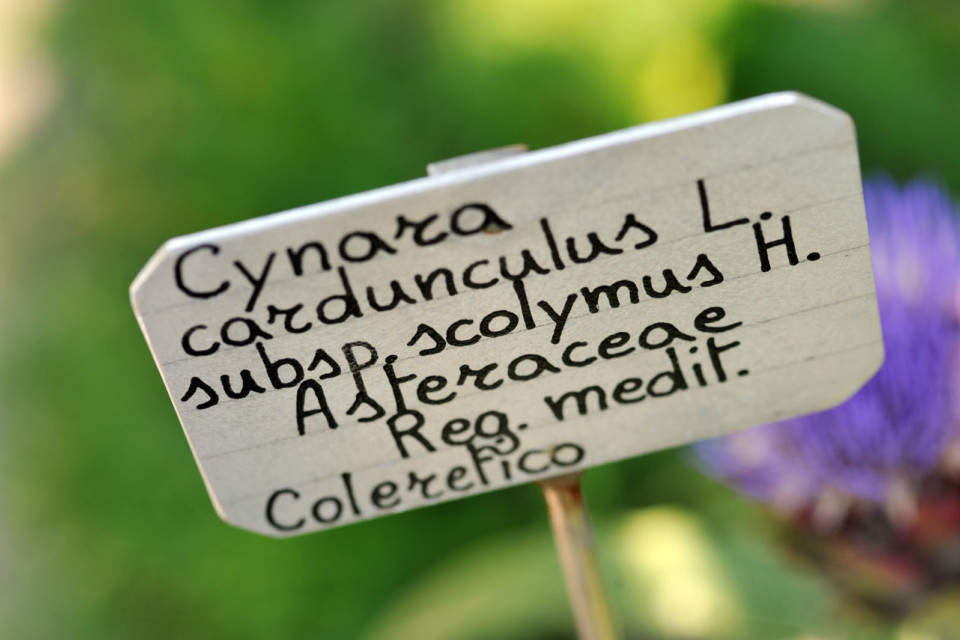 Cynara
cardunculus L.
subsp. scolymus H.
Asteraceae
Reg. medit.
Coleretico